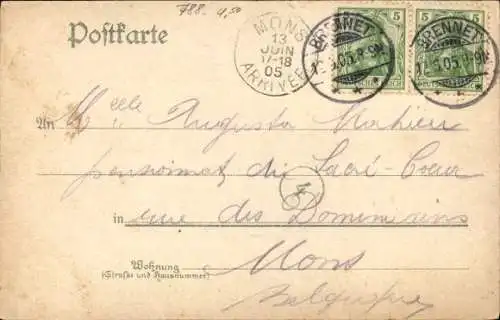 788. 4,50
Postkarte
MONS
13
JUIN
17-18
05
ARRIVEE
BRENNET
5
5
BRENNET
An Melle Augusta Mahieu
pensionnat du Sacré-Coeur
in rue des Dominicains
Wohnung
(Straße und Hausnummer)
Mons
Belgique